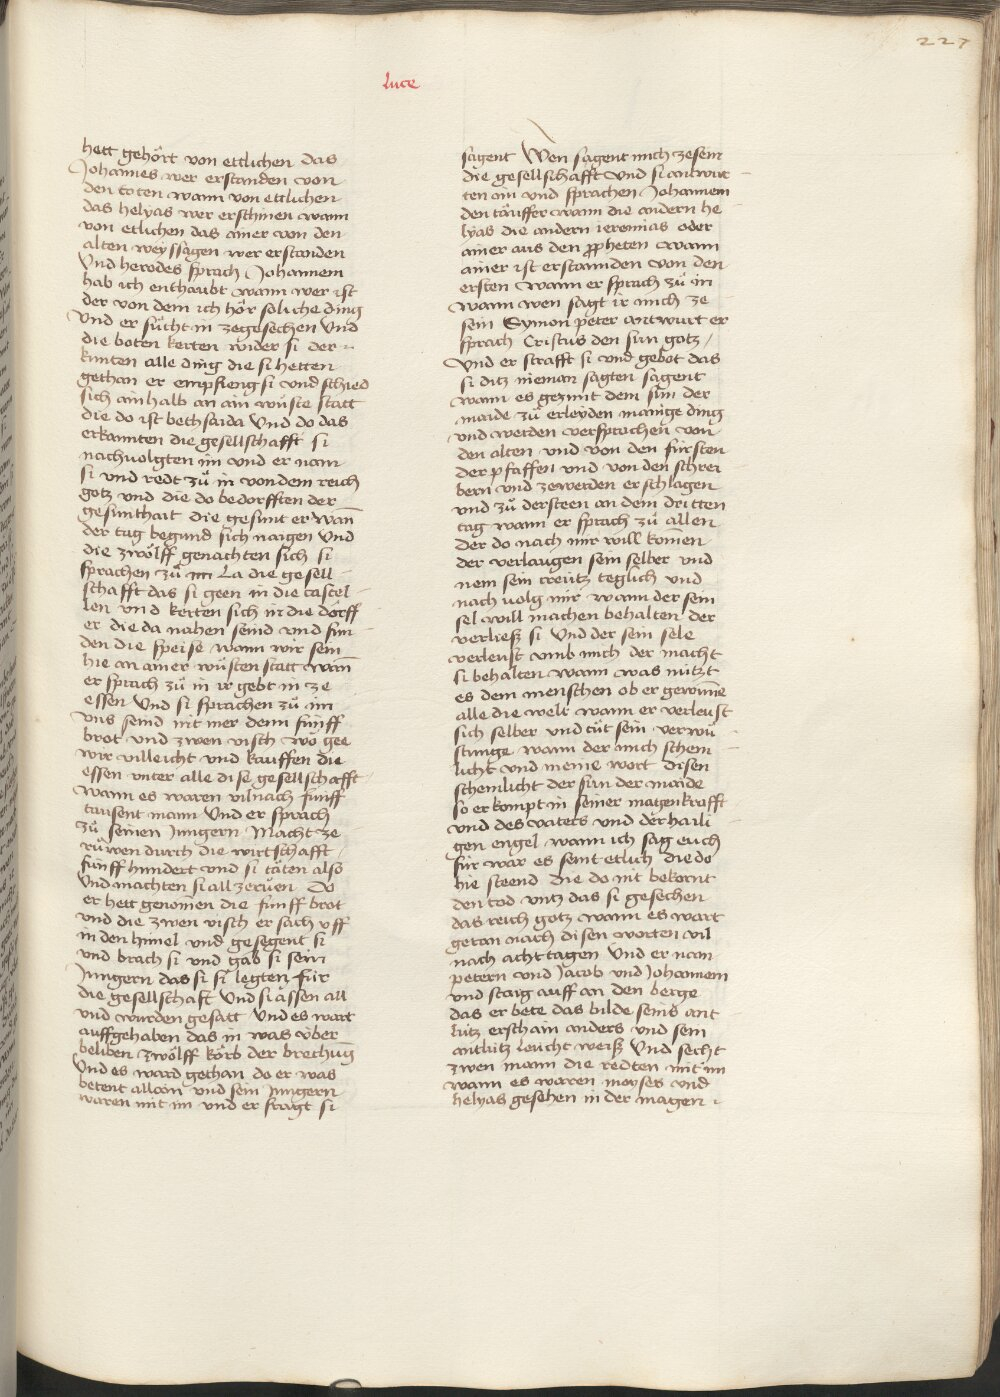 227
luce
hett gehört von ettlichen das
Johannes wer erstanden von
den toten wann von ettlichen
das helyas wer erschinen wann
von etlichen das ainer von den
alten weyssagen wer erstanden
Und herodes sprach Johannem
hab ich enthaubt wann wer ist
der von dem ich hör soliche ding
Und er sücht in zegesechen Und
die boten kerten wider si der
kunten alle ding die si hetten
gethan er empfieng si vnd schied
sich ainhalb an ain wüste statt
die do ist bethsaida Und do das
erkannten die gesellschafft si
nachuolgten im vnd er nam
si vnd redt zů in von dem reich
gotz vnd die do bedorfften der
gesunthait die gesunt er wañ
der tag begund sich naigen Und
die zwölff genachten sich si
sprachen zů im La die gesell
schafft das si geen in die castel
len vnd kerten sich in die dörff
er die da nahen seind vnd fun
den die speise wann wir sein
hie an ainer wüsten statt wañ
er sprach zů in ir gebt in ze
essen Und si sprachen zů im
vns seind nit mer denn fünff
brot vnd zwen visch wo gee
wir villeicht vnd kauffen die
essen vnter alle dise gesellschafft
wann es waren vilnach funff
tausent mann Und er sprach
zů seinen Jungern Macht ze
růwen durch die wirtschafft
fünff hundert vnd si täten also
Und machten si all zerůen Do
er hett genomen die fünff brot
vnd die zwen visch er sach vff
in den himel vnd gesegent si
vnd brach si vnd gab si sein
Jungern das si si legten für
die gesellschaft Und si assen all
vnd wurden gesatt Und es wart
auffgehaben das in was über
beliben zwölff körb der brechuñg
Und es ward gethan do er was
betent allain vnd sein Jungern
waren mit im vnd er fragt si
sagent Wen sagent mich ze sein
die gesellschafft Und si antwur
ten im vnd sprachen Johannem
den täuffer wann die andern he
lyas die andern ieremias oder
ainer aus den ppheten wann
ainer ist erstannden von den
ersten wann er sprach zů in
wann wen sagt ir mich ze
sein Symon peter antwurt er
sprach Cristus den sun gotz
Und er strafft si vnd gebot das
si ditz nieman sagten sagent
wann es gezimt dem sun der
maide zů erleyden mainige ding
vnd werden versprachen von
den alten vnd von den fürsten
der pfaffen vnd von den schrei
bern vnd ze werden erschlagen
vnd zů dersteen an dem dritten
tag wann er sprach zů allen
Der do nach mir will komen
der verlaugen sein selber vnd
nem sein creütz teglich vnd
nach volg mir wann der sein
sel will machen behalten der
verließ si Und der sein sele
verleust vmb mich der macht
si behalten wann was nützt
es dem menschen ob er gewinne
alle die welt wann er verleust
sich selber vnd tüt sein verwü
stunge wann der mich schem
licht vnd meine wort disen
schemlicht der sun der maide
so er kompt in seiner magenkrafft
vnd des vaters vnd der haili
gen engel wann ich sag euch
für war es seint etlich die do
hie steend die do nit bekornt
den tod vntz das si gesechen
das reich gotz wann es wart
getan nach disen worten vil
nach acht tagen Und er nam
petern vnd Jacob vnd Johannem
vnd staig auff an den berge
das er bete das bilde seins ant
lütz erschain anders vnd sein
antlütz leucht weiß Und secht
zwen mann die redten mit im
wann es waren moyses vnd
helyas gesehen in der magen